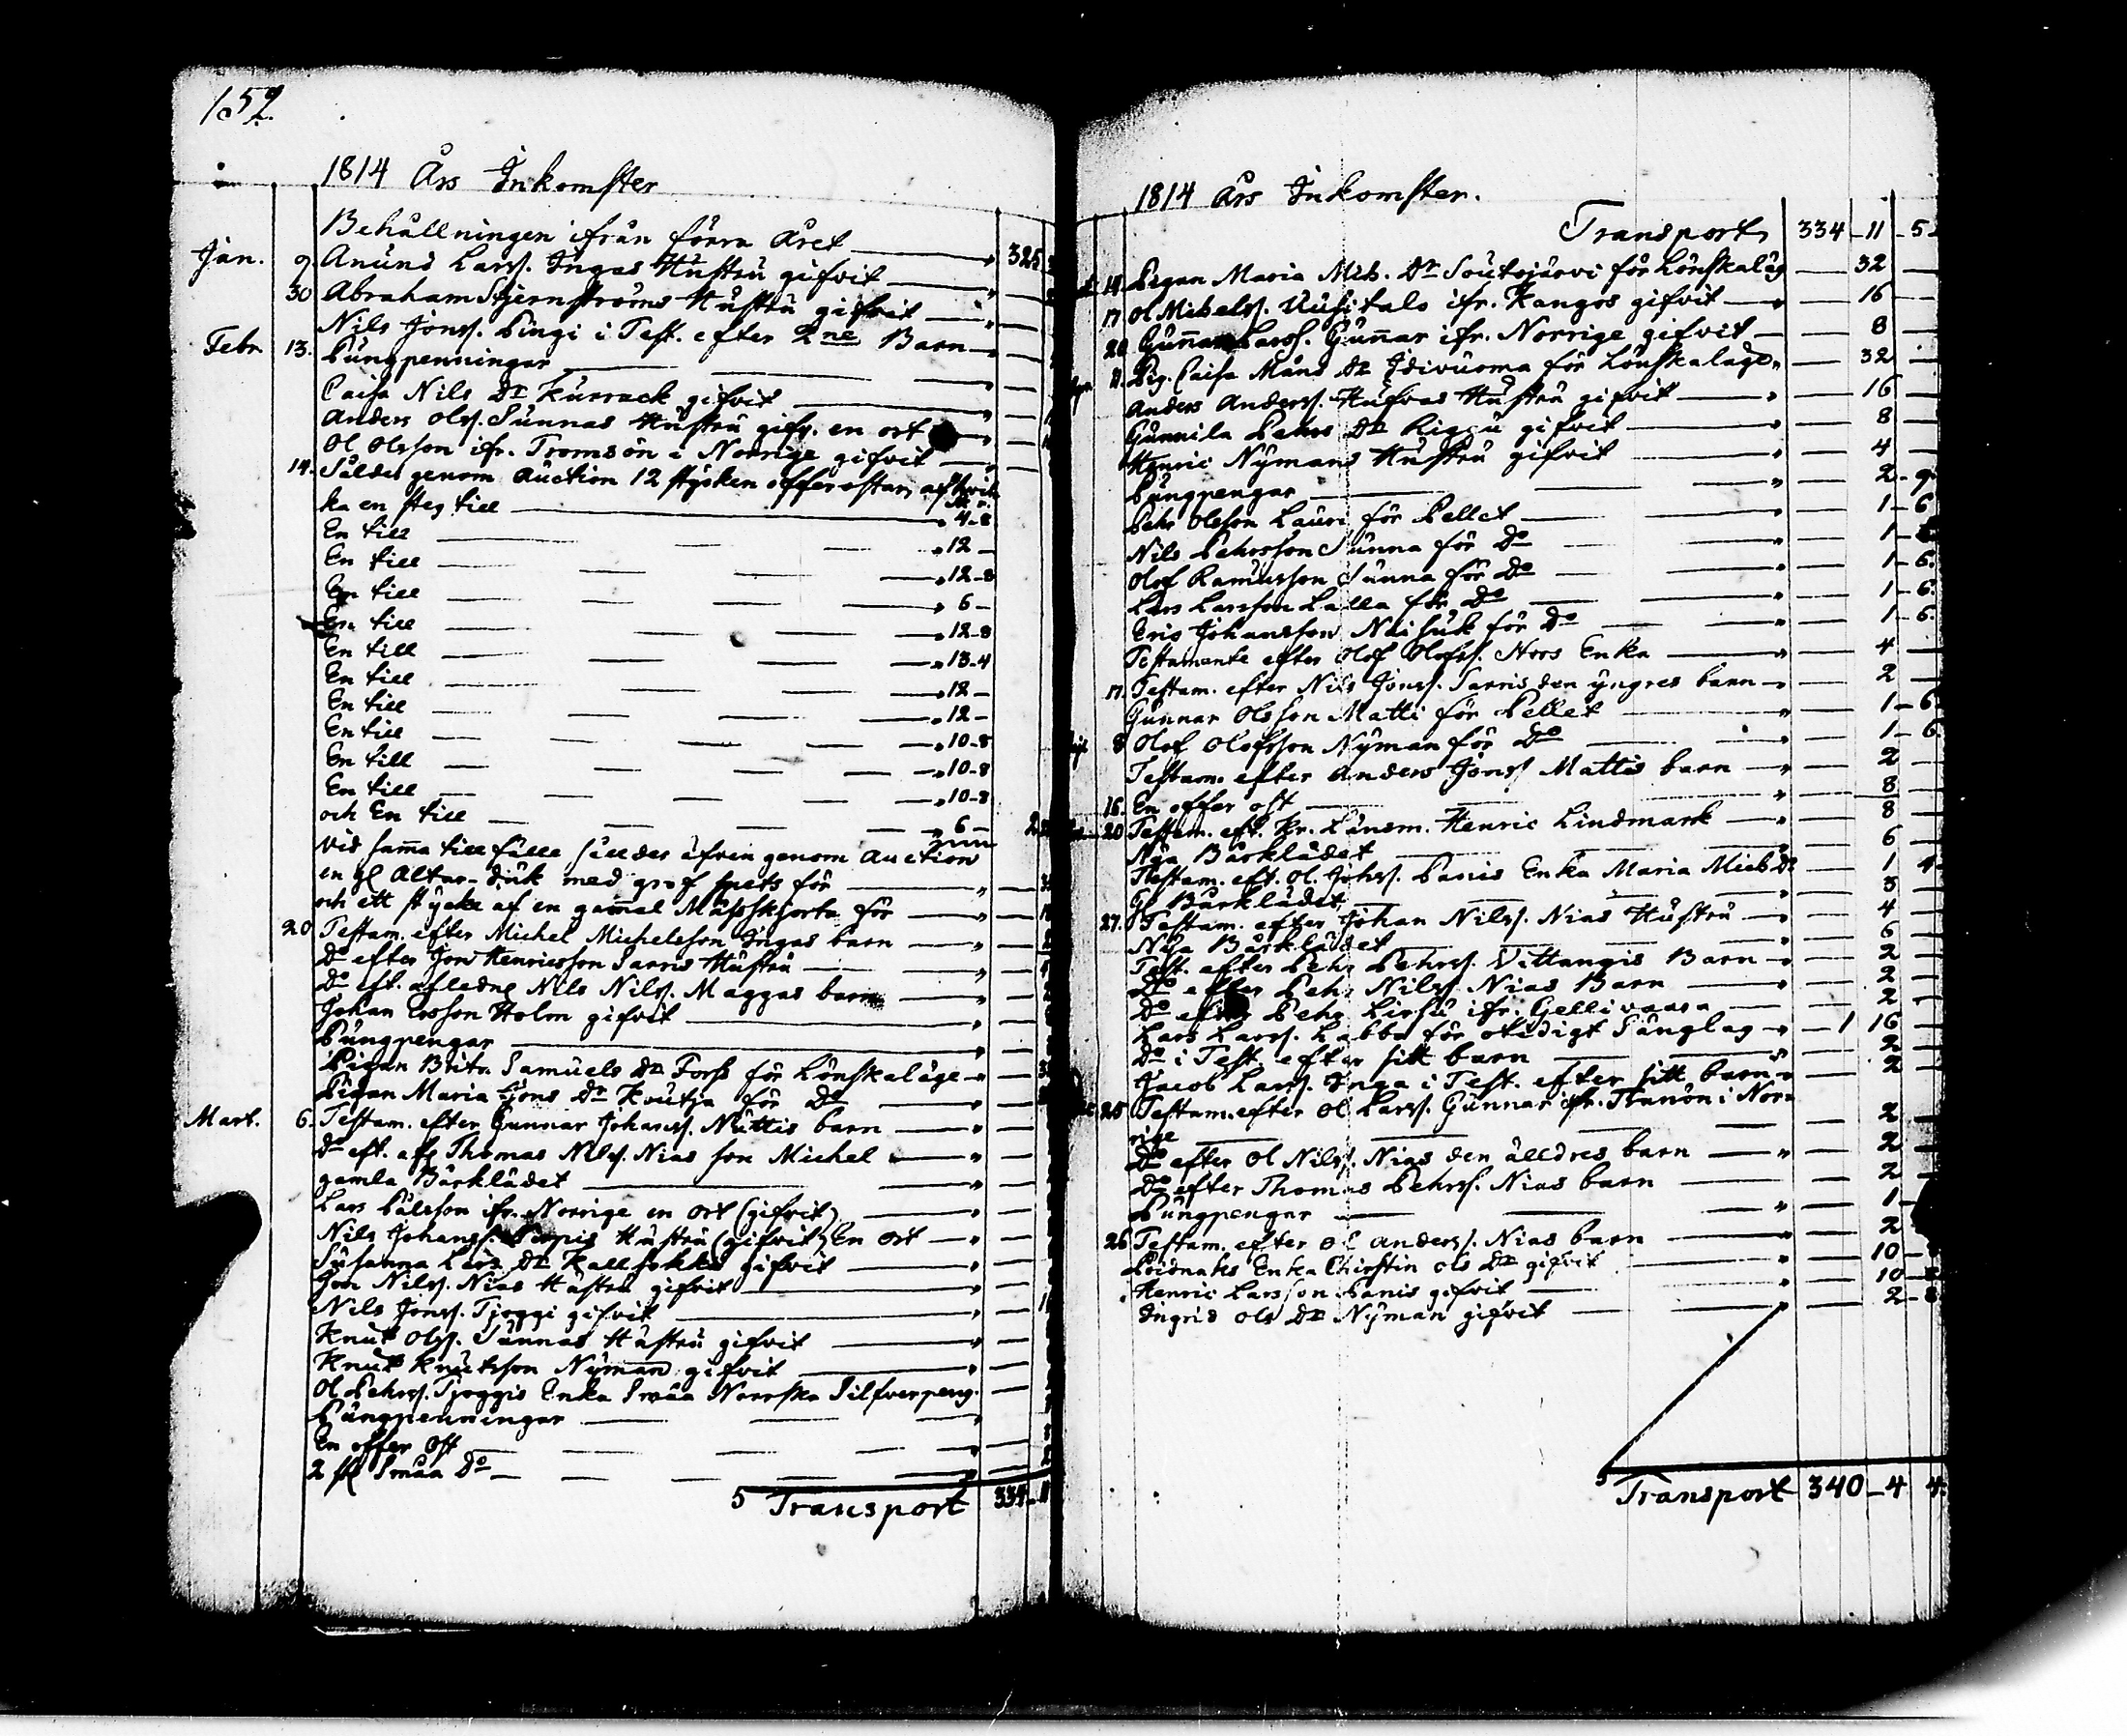 152.
1814 Års Inkomster
Behållningen ifrån förra Året 325
Jan. 9. Anund Larss. Ingas Hustru gifvit
30 Abraham Stjernströms Hustru gifvit
Nils Jonss. Pingi i Test. efter 2ne Barn
Febr. 13. Pungpenningar
Caisa Nils Dr Kurrack gifvit
Anders Olss. Sunnas Hustru gifv. en ort
Ol Olsson ifr. Tromsön i Norrige gifvit
14. Såldes genom Auction 12 stycken offerostar, af hvil
ka en steg till 4-8
En till 12 -
En till 12-8
En till 6 -
En till 12-8
En till 13-4
En till 12 -
En till 12 -
En till 10-8
En till 10-8
En till 10-8
och En till 6 -
Vid sam̄a tillfälle såldes äfven genom Auction
en gl Altar-duk med grof spets för
och ett stycke af en gam̄al Mässkjorta för
20 Testam. efter Michel Michelsson Ingas barn
Do efter Jon Henricsson Sarris Hustru
Do eft. afledne Nils Nilss. Maggas barn
Johan Ersson Holm gifvit
Pungpengar
Pigan Brita Samuels Dr Forss för Lönskaläge
Pigan Maria Jons Dr Koutja för Do
Mart. 6. Testam. efter Gunnar Johanss. Nuttis barn
Do eft. afl Thomas Nilss. Nias son Michel
gamla Bårklädet
Lars Pålsson ifr. Norrige en ort (gifvit)
Nils Johanss. Hustru (gifvit) En ort
Susanna Lars Dr gifvit
Jon Nilss. Nias Hustru gifvit
Nils Jonss. Tjoggi gifvit
Knut Olss. Sunnas Hustru gifvit
Knut Knutsson Nyman gifvit
Ol Pehrss. Tjoggis Enka Småa Norrska Silfverpeng.
Pungpenningar
En offer Ost
2 st Småa Do
5 Transport 334-11
1814 Års Inkomster.
Transport 334-11-5
14. Pigan Maria Mich. Dr Soutojärvi för Lönskaläg 32
17 Ol Michelss. Uusitalo ifr. Kangos gifvit 16
20 Gun̄ar Larss. Gun̄ar ifr. Norrige gifvit 8
11. Pig. Caisa Måns Dr Idivuoma för Lönskaläge 32
Anders Anderss. Hufvas Hustru gifvit 16
Gunnila Pehrs Dr gifvit 8
Henric Nymans Hustru gifvit 4
Pungpengar 2-9
Pehr Olsson Lauri för Pellet 1-6
Nils Pehrsson Sunna för Do 1-6
Olof Ramusson Sunna för Do 1-6
Lars Larsson Lalla för Do 1-6.
Eric Johansson för Do 1-6.
Testamente efter Olof Olofss. Enka 4
17. Testam. efter Nils Jonss. Sarris den yngres barn 2
Gunnar Olsson Matti för Pellet 1-6
8 Olof Olofsson Nyman för Do 1-6
Testam. efter Anders Jonss Mattis barn 2
16. En offer ost 8
20 Testam. eft. Kr. Länsm. Henric Lindmark 8
Nya Bårklädet 6
Testam. eft. Ol. Johss. Panis Enka Maria Mich Dr 1 4
Gl Bårklädet 3
27. Testam. efter Johan Nilss. Nias Hustru 4
Nya Bårklädet 6
Test. efter Pehr Pehrss. Vittangis Barn 2
Do efter Pehr Nilss. Nias Barn 2
Do efter Pehr ifr. Gellivaara 2
Lars Larss. Labba för otidigt Sänglag 1 16
Do i Test. efter sitt barn 2
Jacob Larss. Inga i Test. efter sitt barn 2
25 Testam. efter Ol Larss. Gunnar ifr. Tranön i Nor
rige 2
Do efter Ol Nilss. Nias den älldres barn 2
Do efter Thomas Pehrss. Nias barn 2
Pungpengar 1
26 Testam. efter Ol Anderss. Nias barn 2
Poidnaks Enka Chirstin Ols Dr gifvit 10
Henric Larsson Panis gifvit 10
Ingrid Ols Dr Nyman gifvit 2-8
5 Transport 340-4 4